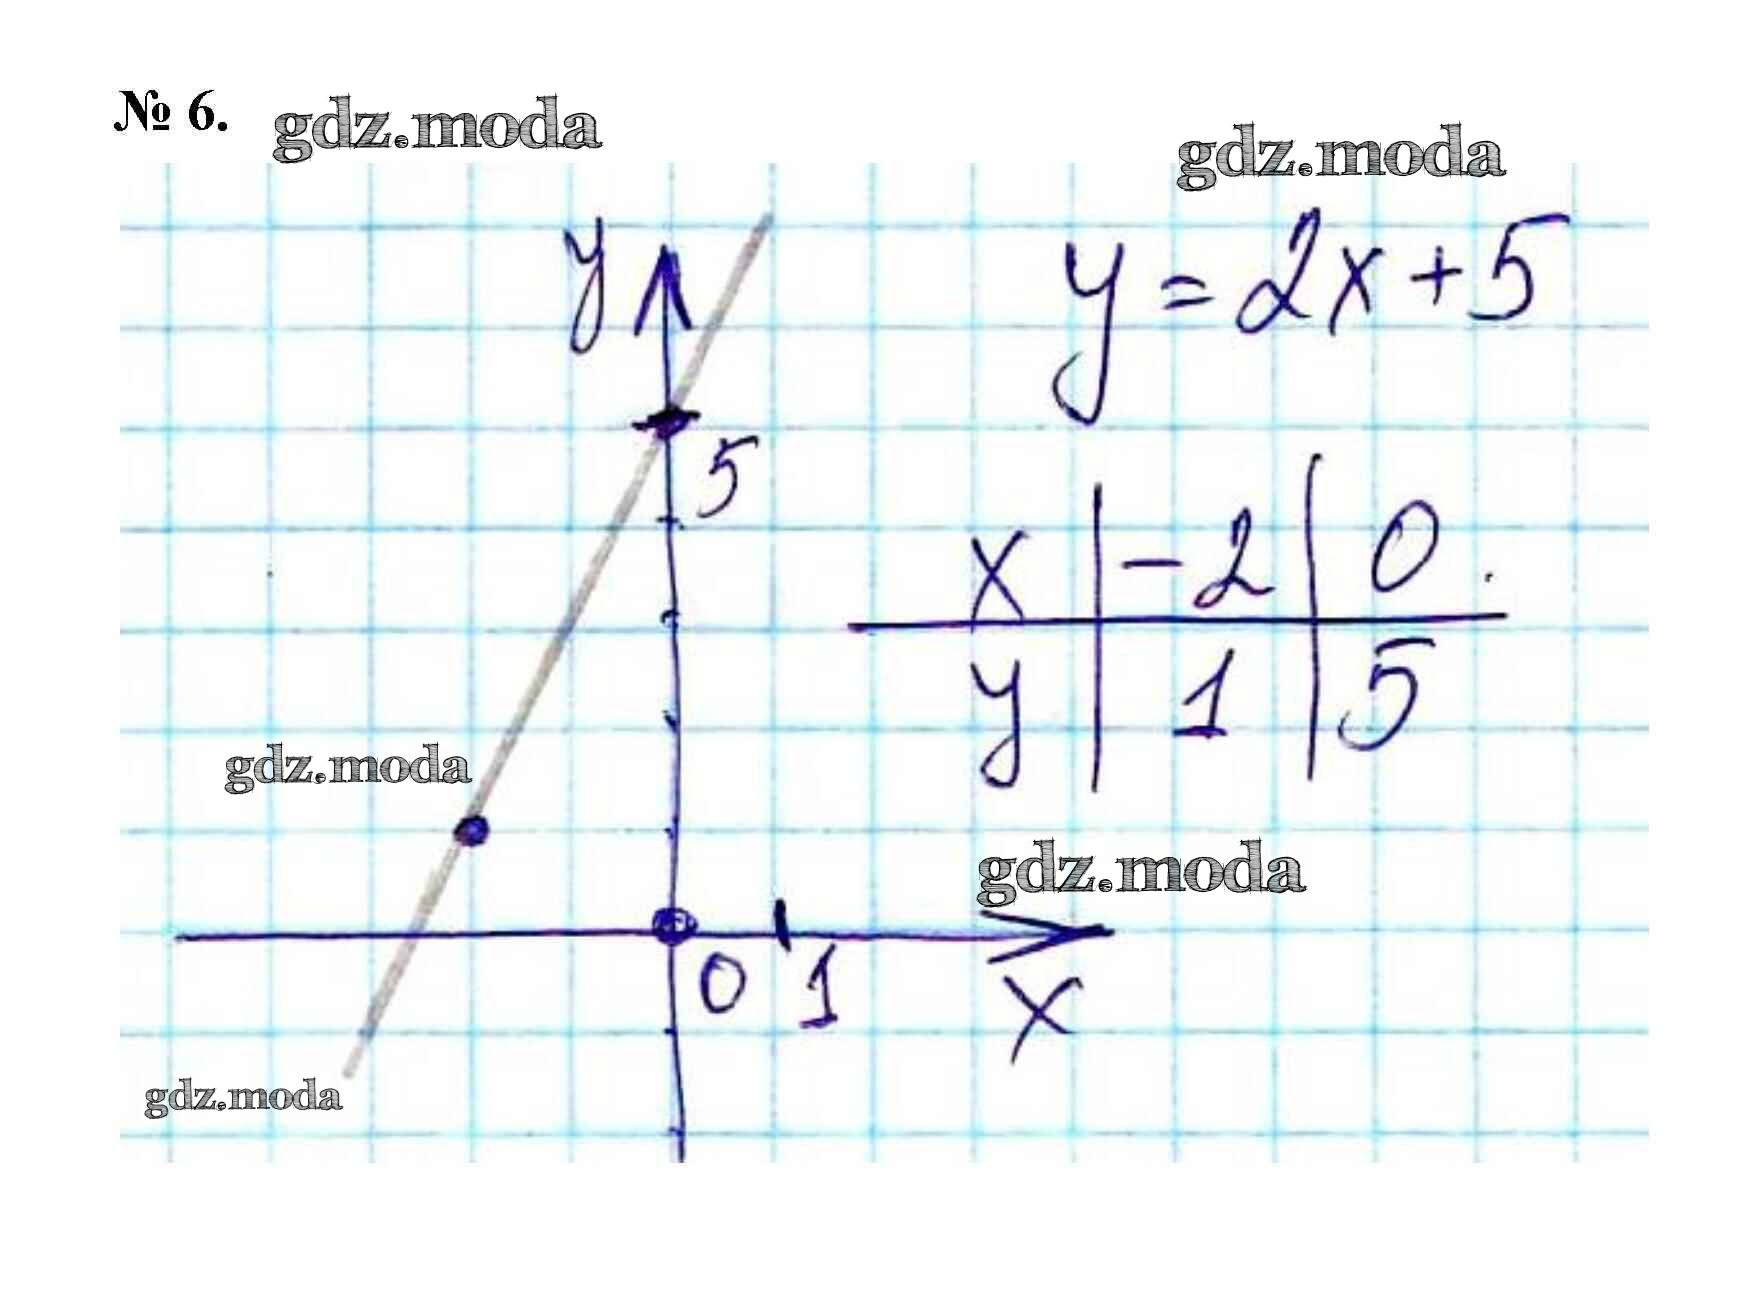 № 6. gdz.moda gdz.moda
y y = 2x + 5
5
x | -2 | 0
y | 1 | 5
gdz.moda
gdz.moda
0 1
x
gdz.moda